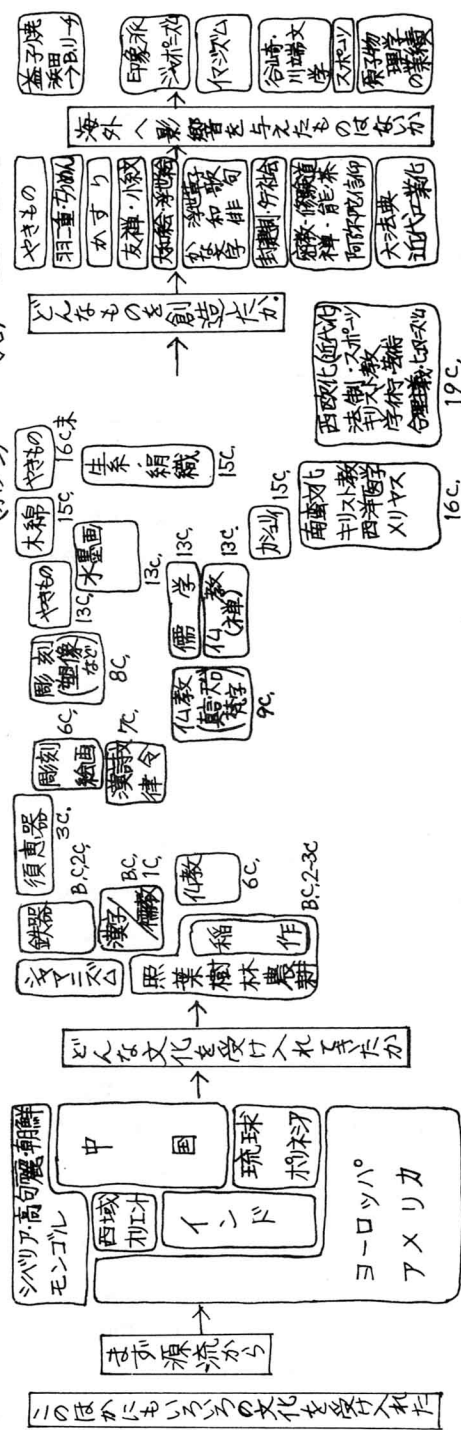 このほかにもいろいろの文化を受け入れた
まず源流から
シベリア・高句麗・朝鮮
モンゴル
中国
西域
オリエント
インド
琉球
ポリネシア
ヨーロッパ
アメリカ
どんな文化を受け入れてきたか
シャアニズム
鉄器
B.C,2C,
須恵器
3C.
漢字/儒教
B.C,
1C,
仏教
6C,
照葉樹林農耕
稲作
B.C,2~3C
彫刻
絵画
6C,
漢詩文
律令
7C,
彫刻
(塑像など)
8C,
仏教
(真言・天台
梵字)
9C,
やきもの
13C,
水墨画
13C,
儒学
13C,
仏教
(禅)
13C.
木綿
15C,
やきもの
16C末
生糸・絹織
15C,
15C,
南蛮文化
キリスト教
西洋医学
メリヤス
16C,
西欧化(近代化)
法制・スポーツ
キリスト教
学術・芸術
19C,
どんなものを創造したか.
やきもの
羽二重・ちりめん
かすり
友禅・小紋
大和絵・浮世絵
かな文学
和歌
俳句
禅・能・茶
阿弥陀信仰
近代工業化
海外へ影響を与えたものはないか
益子焼
浜田
→B.リーチ
印象派
ジャポニズム
イマジズム
谷崎・
川端文学
スポーツ
原子物理学の業績